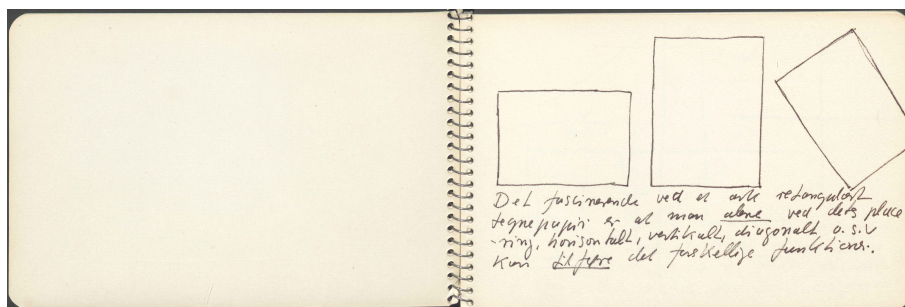 Det fascinerende ved et ark retangulært
tegnepapir er at man alene ved dets place
-ring, horisontalt, vertikalt, diagonalt o.s.v
kan tilføre det forskellige funktioner.